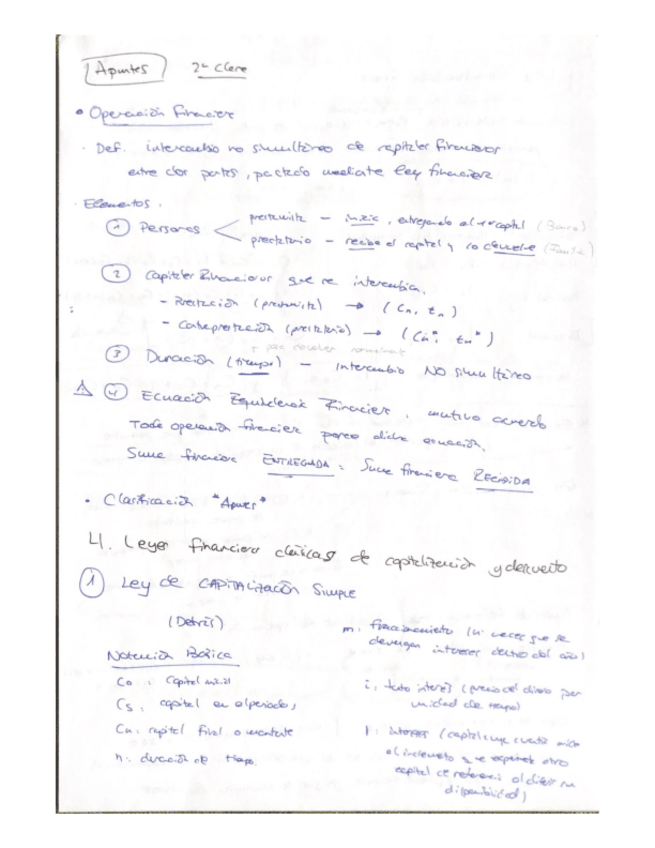 Apuntes 2ª Clase
• Operación financiera
- Def. intercambio no simultáneo de capitales financieros
entre dos partes, pactado mediante ley financiera
- Elementos.
① Personas
prestamista - inicia, entregando el 1er capital (Banco)
prestatario - recibe el capital y lo devuelve
② Capitales financieros que se intercambian.
- Prestación (prestamista) → (Cn, tn)
- Contraprestación (prestatario) → (Cn*, tn*)
③ Duración (tiempo) - intercambio NO simultáneo
④ Ecuación Equivalencia Financiera, mutuo acuerdo
Toda operación financiera posee dicha ecuación.
Suma financiera ENTREGADA = Suma financiera RECIBIDA
• Clasificación "Apuntes"
4. Leyes financieras clásicas de capitalización y descuento
① Ley de CAPITALIZACIÓN SIMPLE
(Detrás)
Notación Básica
Co: Capital inicial
Cs: capital en el periodo s
Cn: capital final o montante
n: duración de tiempo.
m: fraccionamiento (nº veces que se
devengan intereses dentro del año)
i: tanto interés (precio del dinero por
unidad de tiempo)
I: intereses (capital cuya cuantía mide
el incremento que experimenta otro
capital de referencia al diferir su
disponibilidad)